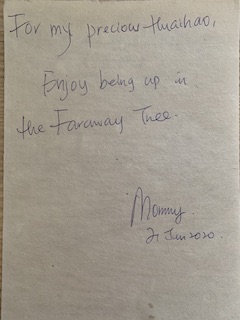 For my precious Huaihao,
Enjoy being up in
the Faraway Tree.
Mommy
21 Jun 2020